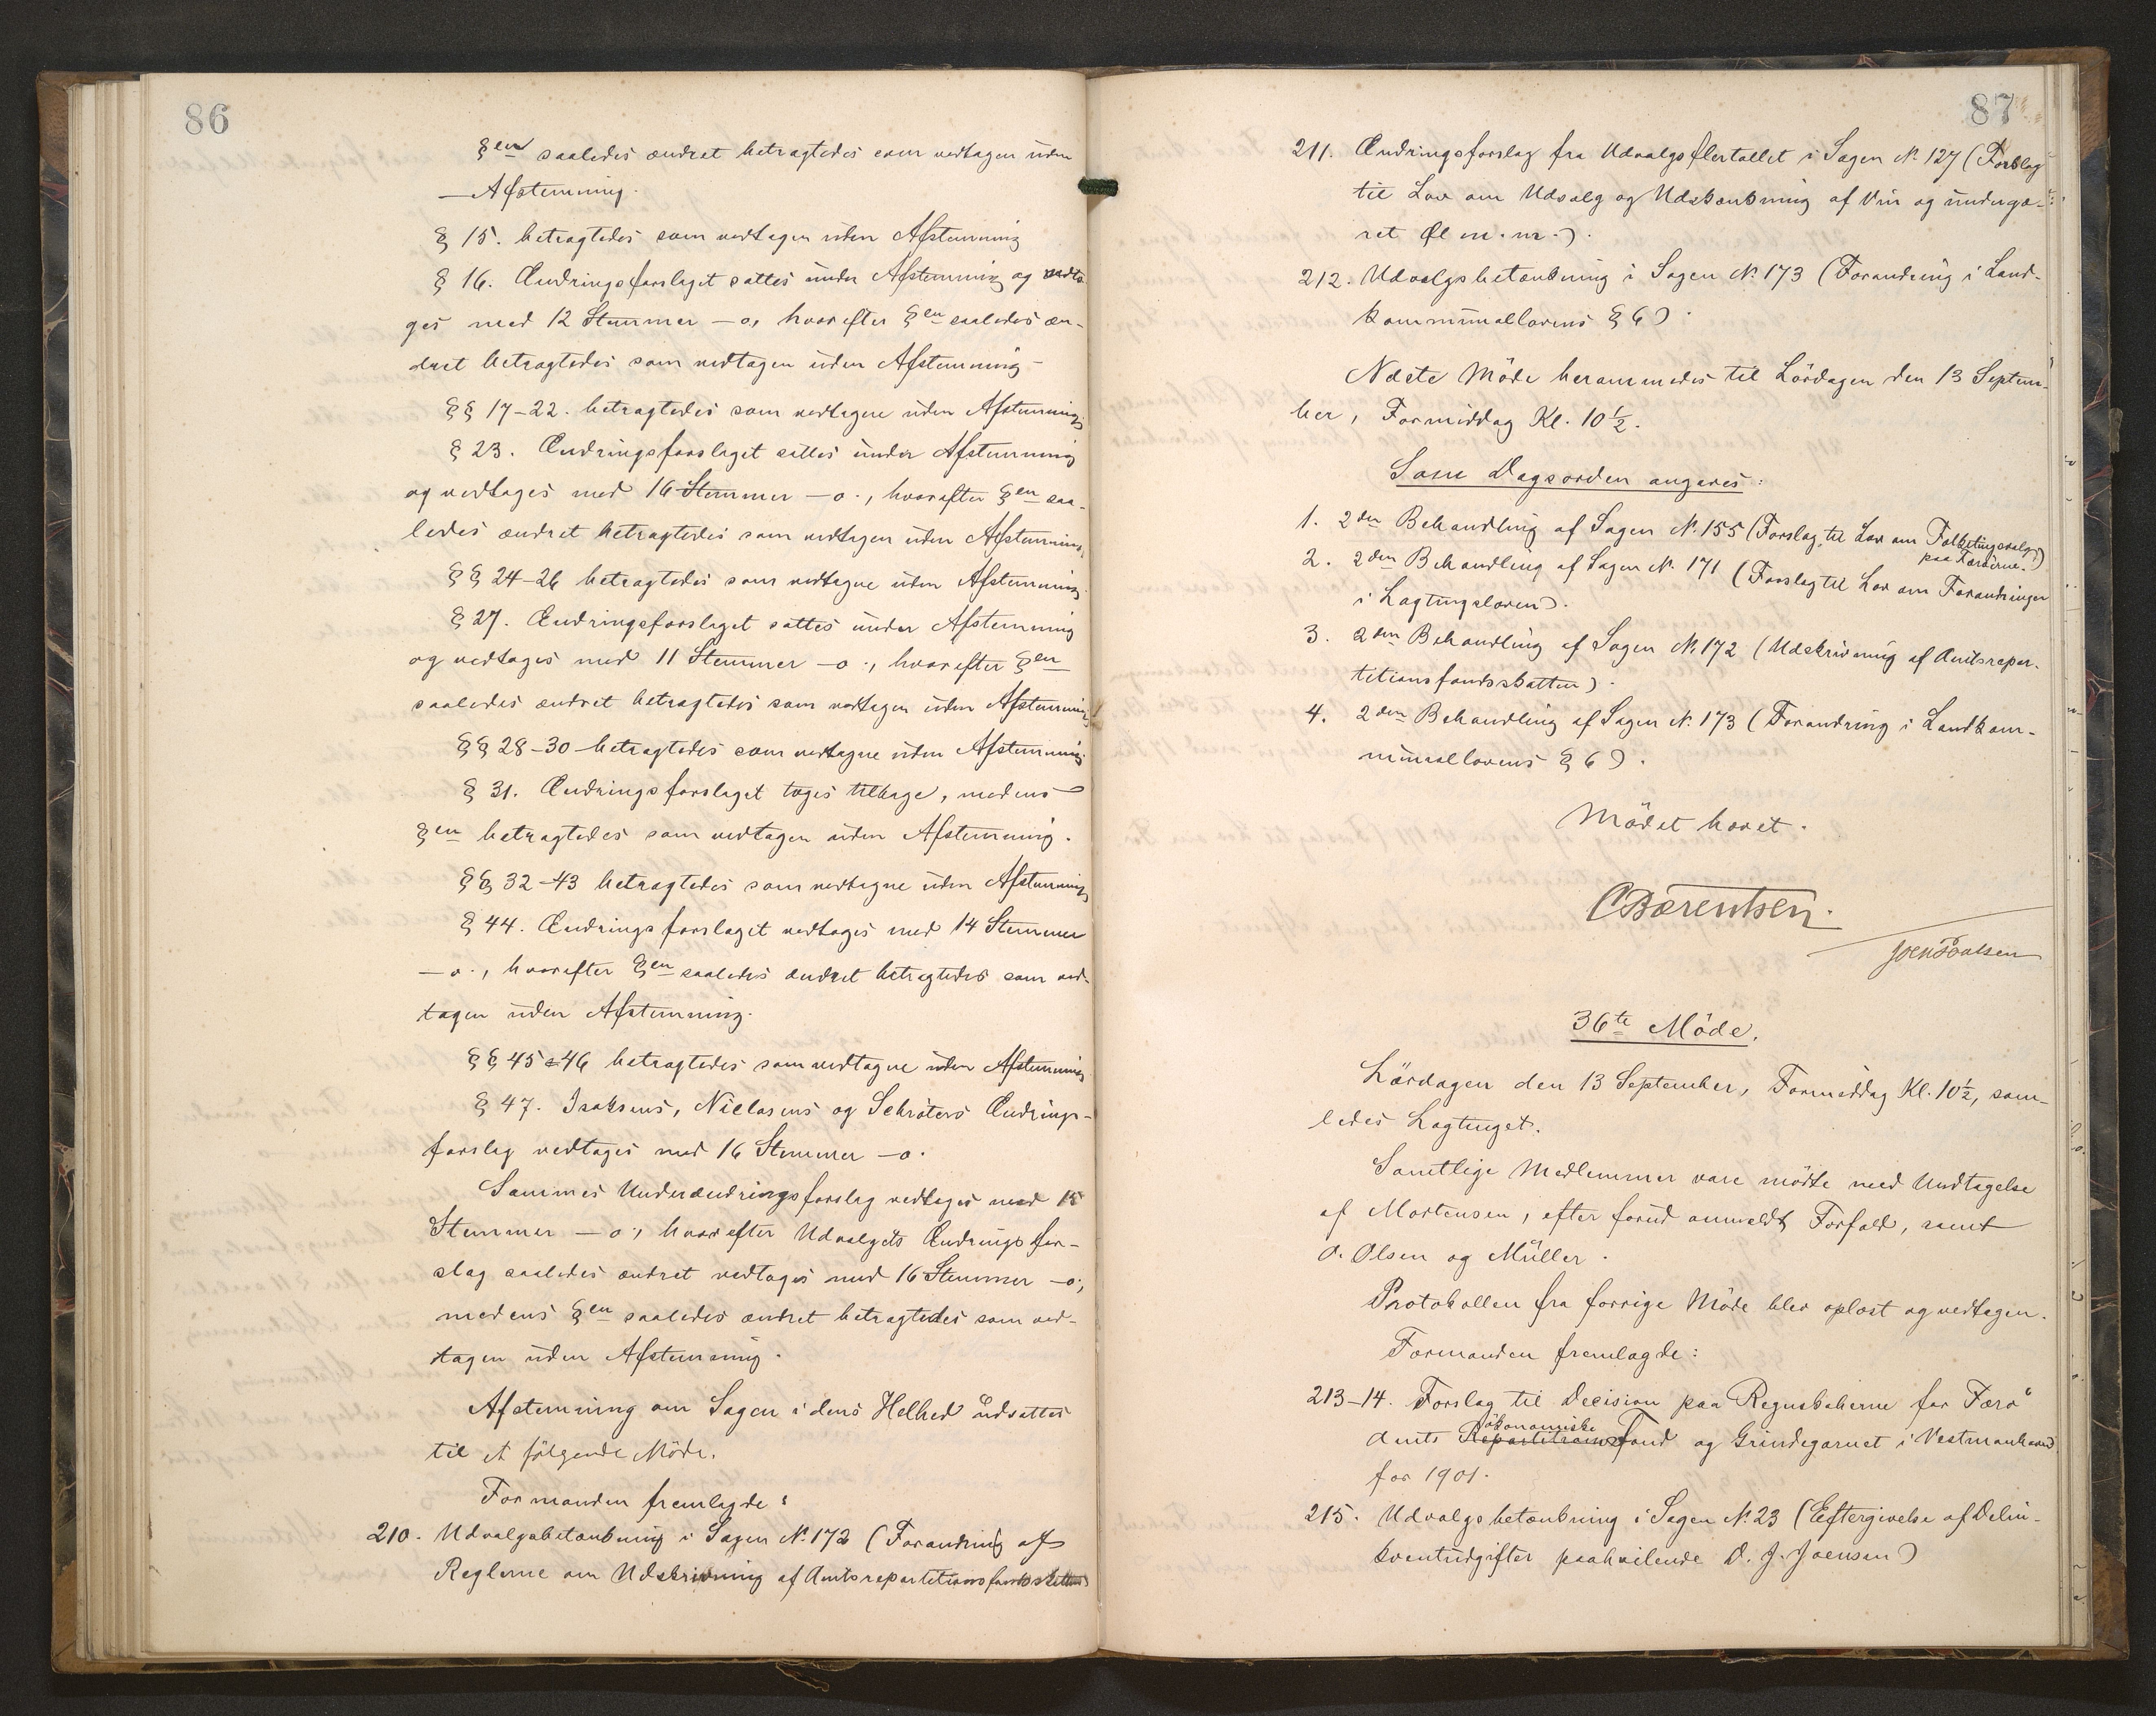 86
§en saaledes ændret betragtedes som vedtagen uden
— Afstemning.
§ 15. betragtedes som vedtagen uden Afstemning
§ 16. Ændringsforslaget sattes under Afstemning og vedto-
ges med 12 Stemmer — o, hvorefter §en saaledes æn-
dret betragtedes som vedtagen uden Afstemning
§§ 17-22. betragtedes som vedtagne uden Afstemning
§ 23. Ændringsforslaget sattes under Afstemning
og vedtoges med 16 Stemmer — o., hvorefter §en saa-
ledes ændret betragtedes som vedtagen uden Afstemning.
§§ 24-26 betragtedes som vedtagne uden Afstemning.
§ 27. Ændringsforslaget sattes under Afstemning
og vedtoges med 11 Stemmer — o., hvorefter §en
saaledes ændret betragtedes som vedtagen uden Afstemning
§§ 28-30 betragtedes som vedtagne uden Afstemning.
§ 31. Ændringsforslaget toges tilbage, medens
§en betragtedes som vedtagen uden Afstemning.
§§ 32-43 betragtedes som vedtagne uden Afstemning
§ 44. Ændringsforslaget vedtoges med 14 Stemmer
— o., hvorefter §en saaledes ændret betragtedes som ved-
tagen uden Afstemning.
§§ 45 & 46 betragtedes som vedtagne uden Afstemning
§ 47. Isaksens, Niclasens og Schröters Ændrings-
forslag vedtoges med 16 Stemmer — o.
Sammes Underændringsforslag vedtoges med 15
Stemmer — o., hvorefter Udvalgets Ændringsfor-
slag saaledes ændret vedtoges med 16 Stemmer — o.,
medens §en saaledes ændret betragtedes som ved-
tagen uden Afstemning.
Afstemning om Sagen i dens Helhed udsattes
til et følgende Møde.
Formanden fremlagde:
210. Udvalgsbetænkning i Sagen No. 172 (Forandring af
Reglerne om Udskrivning af Amtsrepartitionsfondsskatten)
87
211. Ændringsforslag fra Udvalgsflertallet i Sagen No. 127 (Forslag
til Lov om Udsalg og Udskænkning af Vin og undergæ-
ret Øl m. m.).
212. Udvalgsbetænkning i Sagen No. 173 (Forandring i Land-
kommunallovens § 6).
Næste Möde berammedes til Lördagen den 13 Septem-
ber, Formiddag Kl. 10½.
Som Dagsorden angaves:
1. 2den Behandling af Sagen No. 155 (Forslag til Lov om Folketingsvalg
paa Færøerne.)
2. 2den Behandling af Sagen No. 171 (Forslag til Lov om Forandringer
i Lagtingsloven).
3. 2den Behandling af Sagen No. 172 (Udskrivning af Amtsrepar-
titionsfondsskatten).
4. 2den Behandling af Sagen No. 173 (Forandring i Landkom-
munallovens § 6).
Mödet hævet.
CBærentsen.
JoenPoulsen
36te Möde.
Lördagen den 13 September, Formiddag Kl. 10½, sam-
ledes Lagtinget.
Samtlige Medlemmer vare mödte med Undtagelse
af Mortensen, efter forud anmeldt Forfald, samt
O. Olsen og Müller.
Protokollen fra forrige Möde blev oplæst og vedtagen.
Formanden fremlagde:
213-14. Forslag til Decision paa Regnskaberne for Færö
ökonomiske
Amts Repartitions Fond og Grindegarnet i Vestmanhavn
for 1901.
215. Udvalgsbetænkning i Sagen No. 23 (Eftergivelse af Delin-
kventudgifter paahvilende D. J. Joensen)